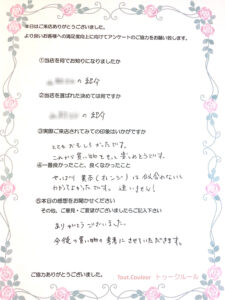 本日はご来店ありがとうございました。
より良いお客様への満足度向上に向けてアンケートのご協力をお願い致します。
①当店を何でお知りになりましたか
の紹介
②当店を選ばれた決めては何ですか
の紹介
③実際ご来店されてみての印象はいかがですか
とても楽しかったです。
これから買い物をもっと楽しめそうです。
④一番良かったこと、良くなかったこと
やっぱり黄み(オレンジ)は似合わないと
わかってよかったです。迷いません!
⑤本日の感想をお聞かせください
その他、ご意見・ご要望がございましたらご記入下さい
ありがとうございました。
今後の買い物の参考にさせていただきます。
ご協力ありがとうございました。
tout.Couleur トゥークルール